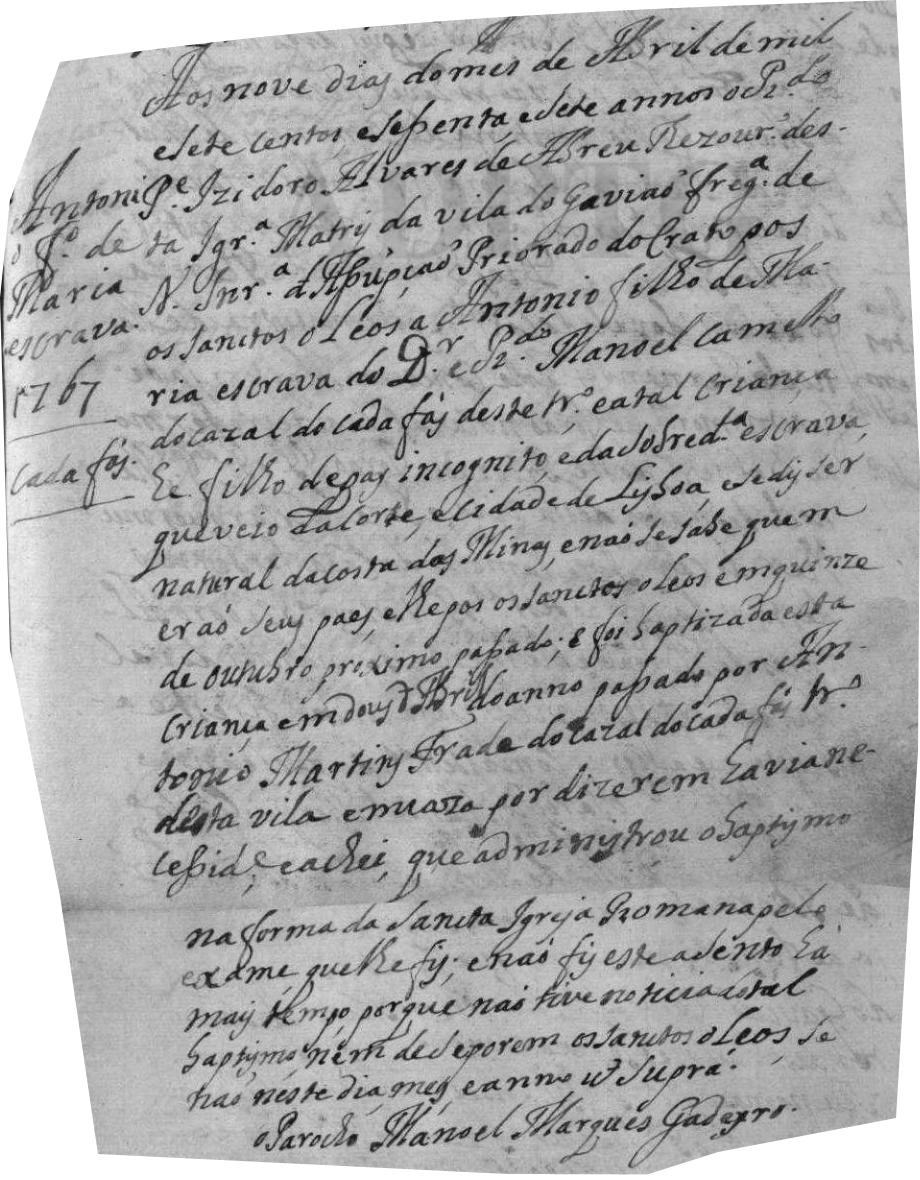 Antoni
o f.º de
Maria
escrava.
1767
Cada fás.
Aos nove dias do mes de Abril de mil
e sete centos, e seSsenta, e sete annos o R.do
P.e Izidoro Alvares de Abreu Thezour.º des-
ta Igr.ª Matris da vila do Gaviaõ freg.ª de
N. Snr.ª d'ASsūpçaõ Priorado do Crato pos
os sanctos oLeos a Antonio filho de Ma-
ria escrava do D.r e R.do Manoel Camello
do cazal do cada fás deste tr.º, e a tal Criança
he filho de pay incognito, e da sobred.ta escrava,
que veio da Corte, e Cidade de Lisboa, e se dis ser
natural da costa das Minas, e naõ se sabe quem
eraõ seus paes e lhe pos os sanctos oleos em quinze
de outubro proximo paSsado; e foi baptizada esta
Criança em dous d'Abril do anno paSsado por An-
tonio Martins Frade do cazal do cada fás tr.º
desta vila em caza por dizerem havia ne-
ceSsid.e, e achei, que administrou o baptismo
na forma da Sancta Igreja Romana pelo
exame, que lhe fis; e naõ fis este asento há
mais tempo, porque naõ tive noticia do tal
baptismo, nem de se porem os sanctos oLeos, se
naõ neste dia, mes, e anno ut supra.
o Parocho Manoel Marques